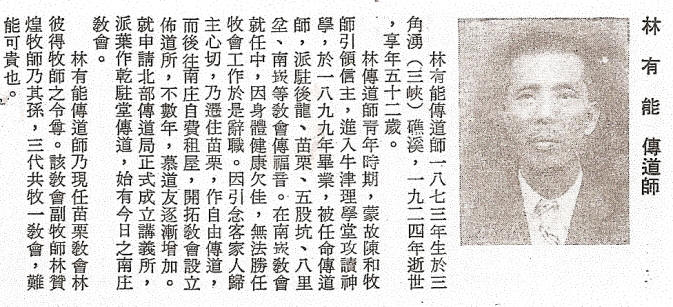 林有能 傳道師
林有能傳道師一八七三年生於三
角湧（三峽）礁溪，一九二四年逝世
，享年五十二歲。
林傳道師青年時期，蒙故陳和牧
師引領信主，進入牛津理學堂攻讀神
學，於一八九九年畢業，被任命傳道
師，派駐後龍、苗栗、五股坑、八里
坌、南崁等敎會傳福音。在南崁敎會
就任中，因身體健康欠佳，無法勝任
牧會工作於是辭職。因引念客家人歸
主心切，乃遷住苗栗，作自由傳道，
而後往南庄自費租屋，開拓敎會設立
佈道所，不數年，慕道友逐漸增加。
就申請北部傳道局正式成立講義所，
派葉作乾駐堂傳道，始有今日之南庄
敎會。
林有能傳道師乃現任苗栗敎會林
彼得牧師之令尊。該敎會副牧師林贊
煌牧師乃其孫，三代共牧一敎會，難
能可貴也。